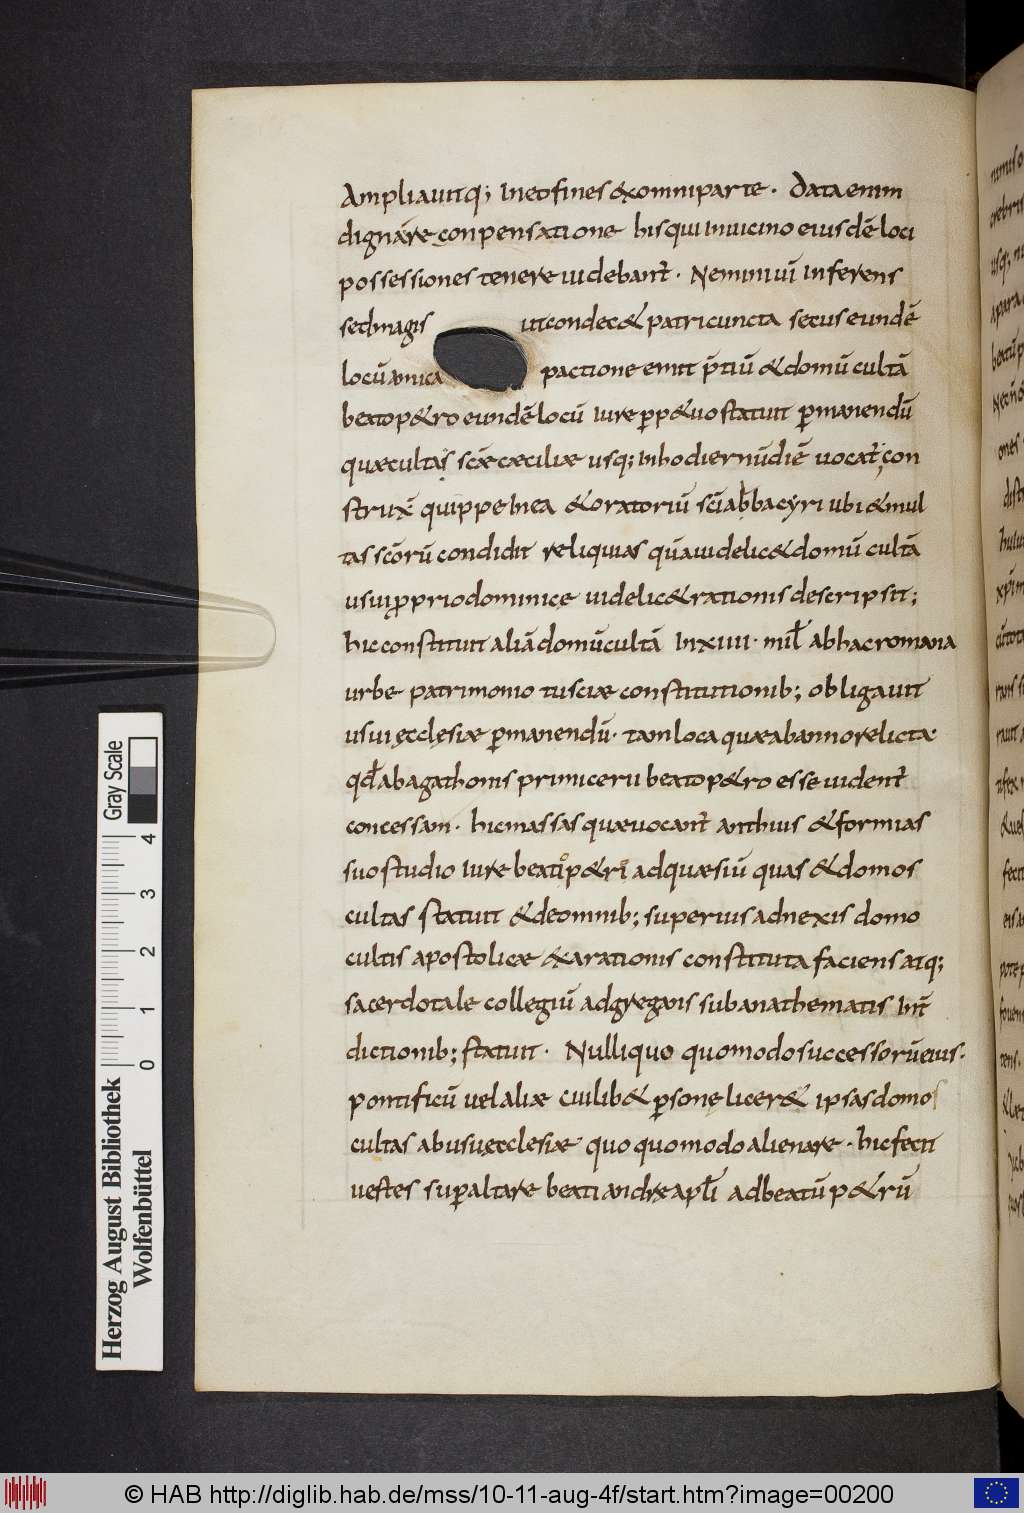 Ampliauitq; in eo fines & omni parte. Data enim
dignare conpensatione his qui in uicino eiusdē loci
possessiones tenere uidebant̄. Nemini uī inferens
sed magis ut condec& patri cuncta secus eundē
locū amica pactione emit p̄tiū & domū cultā
beato p&ro eundē locū iure perp&uo statuit ꝑmanendū
quæ cultas scāe cæciliæ usq; in hodiernū diē uocat̄ con
strux̄ quippe in ea & oratoriū scī abbacyri ubi & mul
tas scōrū condidit reliquias quā uidelic& domū cultā
usui proprio dominicę uidelic& rationis descripsit;
hic constituit aliā domūcultā in xiiii. mil̄ ab hac romana
urbe patrimonio tusciæ constitutionib; obligauit
usui ęcclęsiæ ꝑmanendū. tam loca quæ ab anno relicta
qd̄ ab agathonis primicerii beato p&ro esse uident̄
concessam. hic massas quæ uocant̄ anthius & formias
suo studio iure beati p&ri adquæsiū quas & domos
cultas statuit & de omnib; superius adnexis domo
cultis apostolicæ exarationis constituta faciens atq;
sacerdotale collegiū adgregans sub anathematis int̄
dictionib; statuit. Nulli quo quomodo successorū eius.
pontificū uel aliæ cuilib& ꝑsonę licer& ipsas domos
cultas ab usu ęcclesiæ quo quomodo alienare. hic fecit
uestes suꝑ altare beati andreæ apl̄i ad beatū p&rū
Herzog August Bibliothek
Wolfenbüttel
0 1 2 3 4
Gray Scale
© HAB http://diglib.hab.de/mss/10-11-aug-4f/start.htm?image=00200